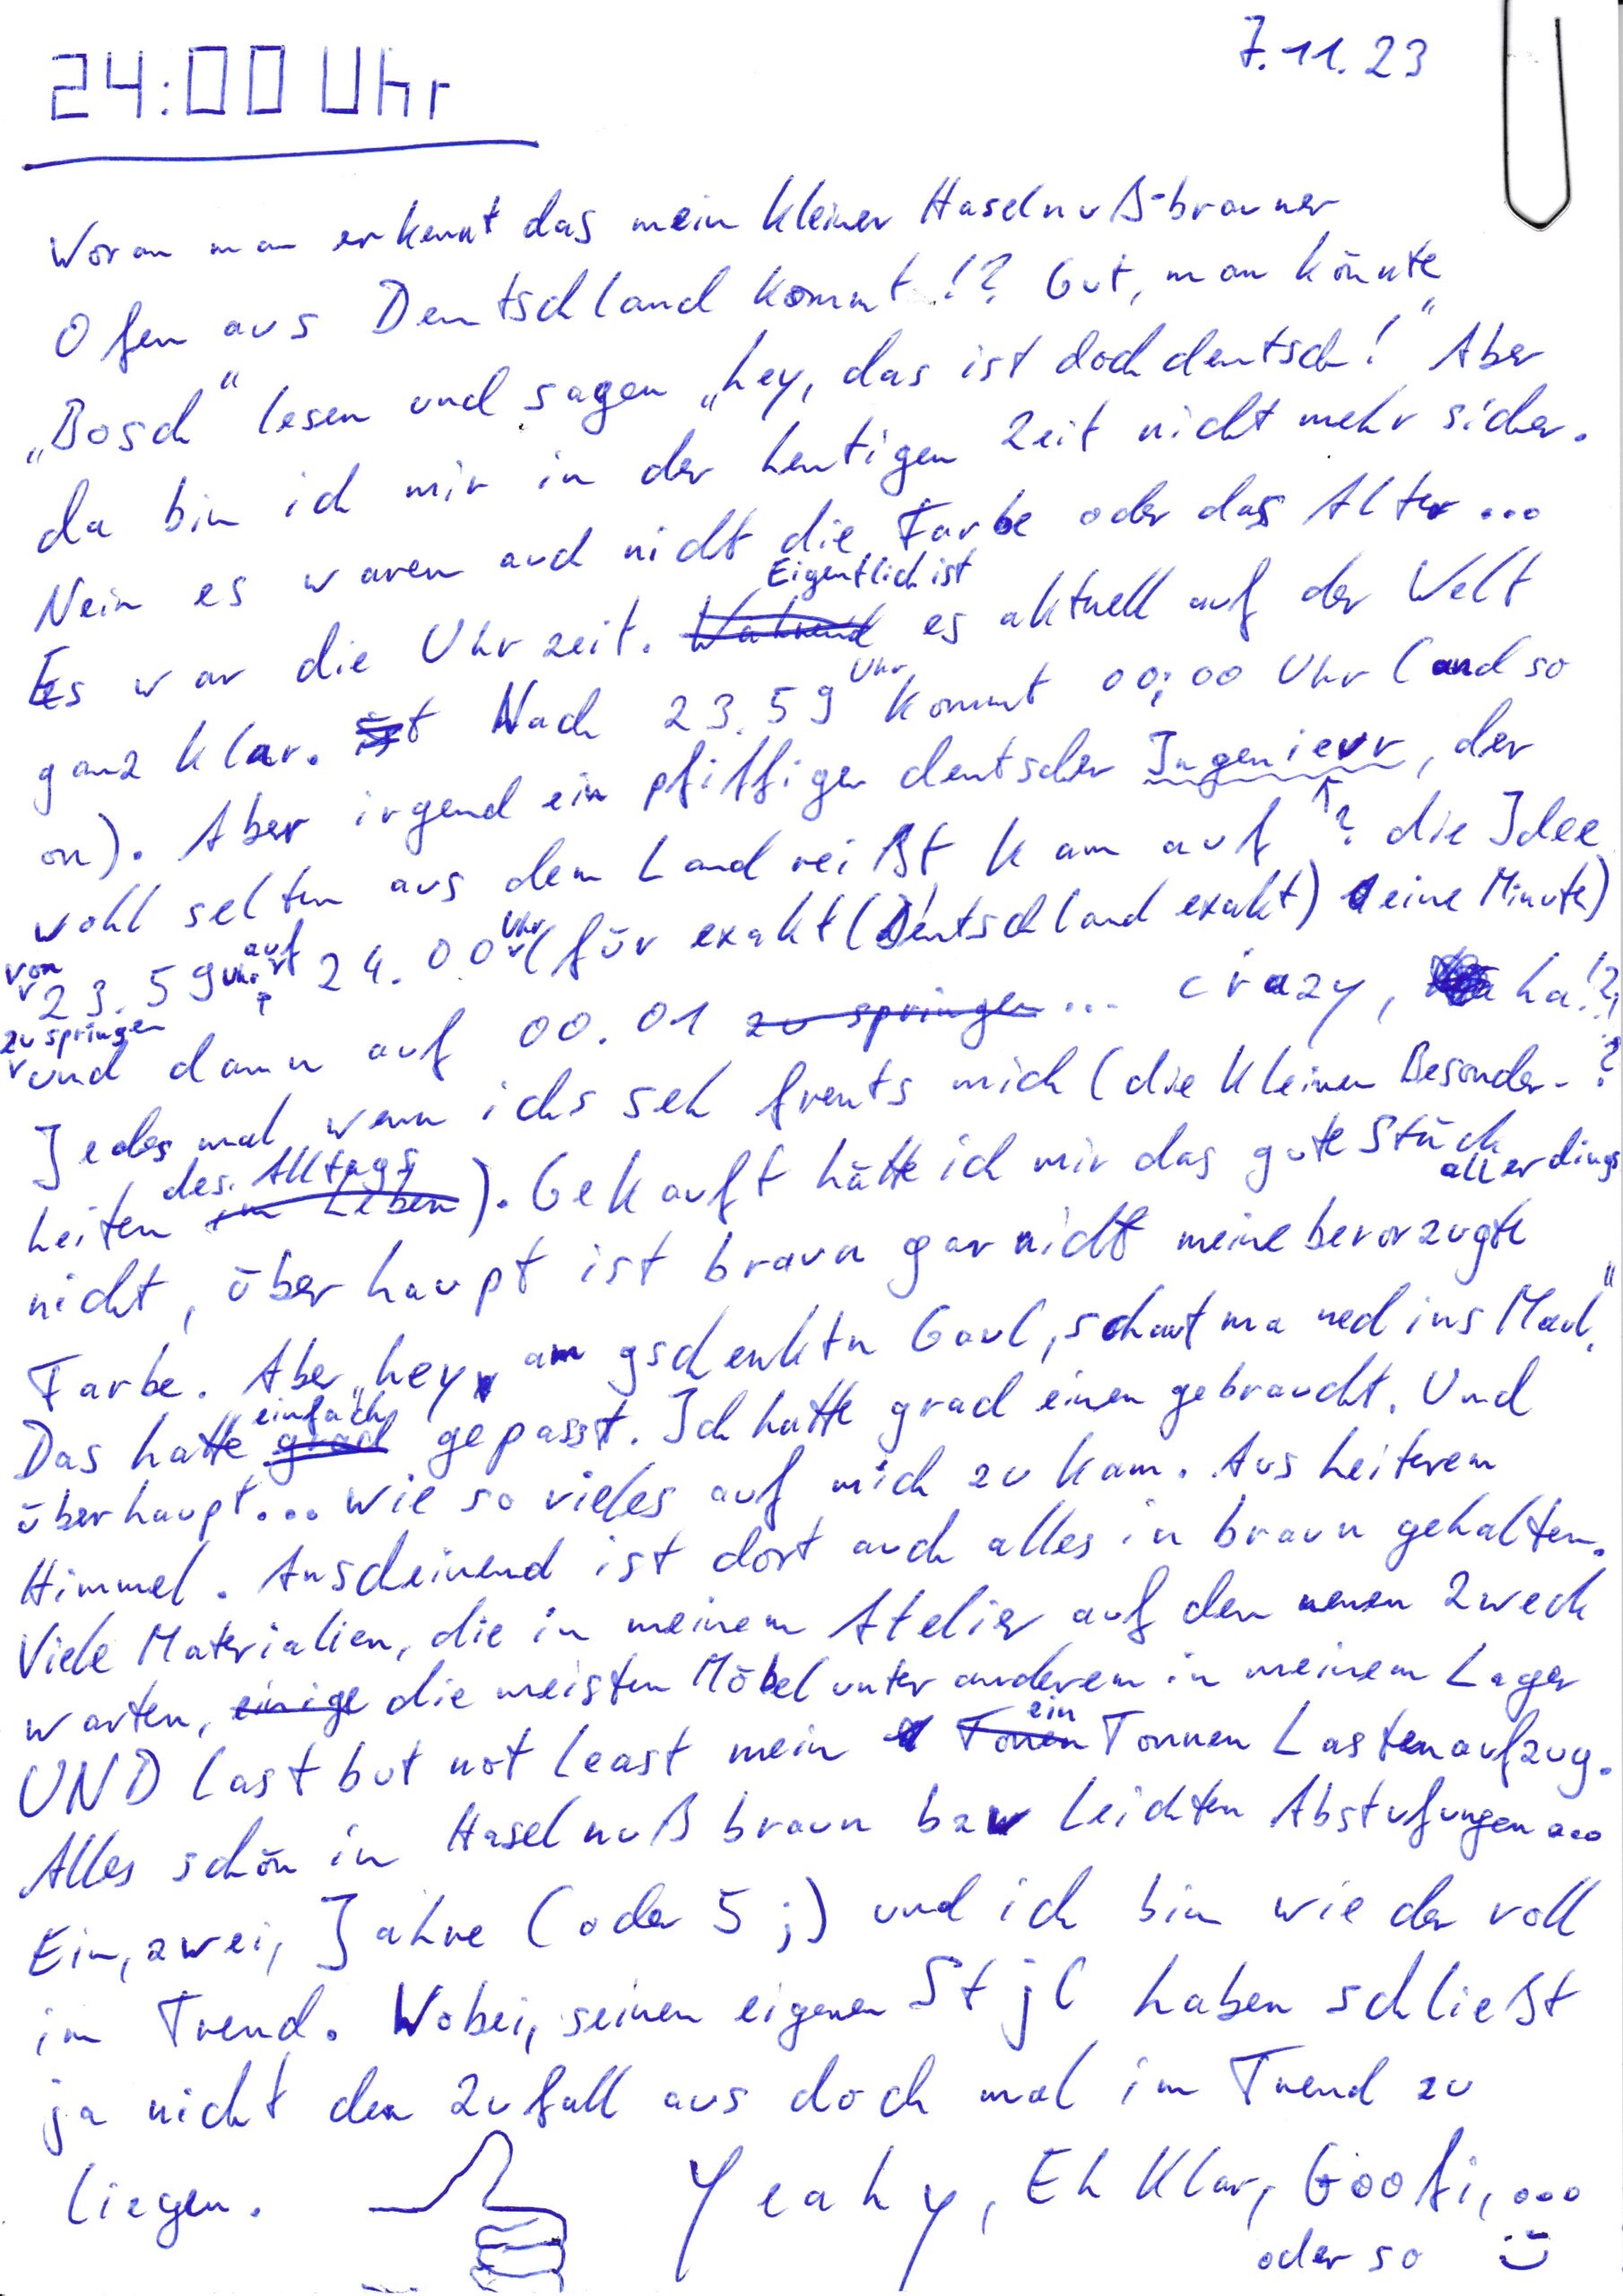 7.11.23
24:00 Uhr
Woran man erkennt das mein kleiner Haselnuß-brauner
Ofen aus Deutschland kommt!? Gut, man könnte
„Bosch" lesen und sagen „hey, das ist doch deutsch!" Aber
da bin ich mir in der heutigen Zeit nicht mehr sicher.
Nein es waren auch nicht die Farbe oder das Alter...
Eigentlich ist
Es war die Uhrzeit. Während es aktuell auf der Welt
Uhr
ganz klar. ist Nach 23.59 kommt 00:00 Uhr (and so
on). Aber irgend ein pfiffiger deutscher Ingenieur, der
wohl selten aus dem Land reißt kam auf ? die Idee
von 23.59 Uhr auf 24.00 Uhr (für exakt (Deutschland exakt) eine Minute)
zu springen
und dann auf 00.01 zu springen... crazy, ha!?
Jedes mal wenn ichs seh freuts mich (die kleinen Besonder-
des Alltags
heiten im Leben). Gekauft hätte ich mir das gute Stück
allerdings
nicht, überhaupt ist braun gar nicht meine bevorzugte
Farbe. Aber „hey, am gschenktn Gaul, schaut ma ned ins Maul."
einfach
Das hatte grad gepasst. Ich hatte grad einen gebraucht. Und
überhaupt... wie so vieles auf mich zu kam. Aus heiterem
Himmel. Anscheinend ist dort auch alles in braun gehalten.
Viele Materialien, die in meinem Atelier auf den neuen Zweck
warten, einige die meisten Möbel unter anderem in meinem Lager
ein
UND last but not least mein Tonen Tonnen Lastenaufzug.
Alles schön in Haselnuß braun bzw leichten Abstufungen...
Ein, zwei, Jahre (oder 5 ;) und ich bin wieder voll
im Trend. Wobei, seinen eigenen Stjl haben schließt
ja nicht den Zufall aus doch mal im Trend zu
liegen. Yeahy, Eh Klar, Goofi,...
oder so